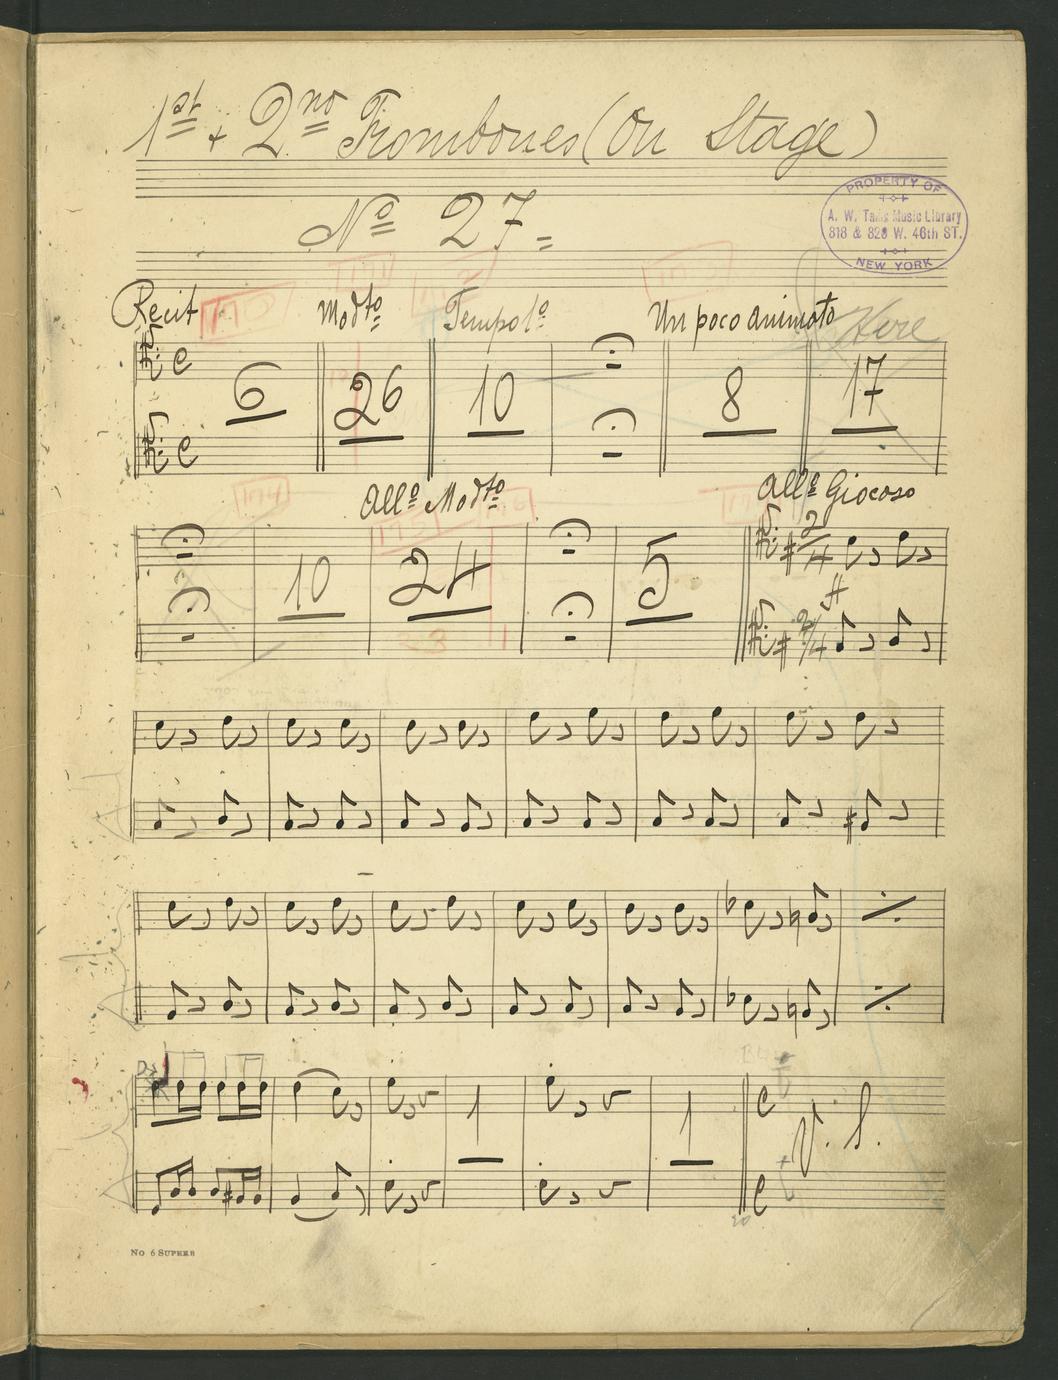 1st + 2nd Trombones (On Stage)
No 27
PROPERTY OF
A. W. Tams Music Library
318 & 320 W. 46th ST.
NEW YORK
Recit Modto Tempo 1o Un poco animato Here
6 26 10 8 17
174 Allo Modto Allo Giocoso
10 24 5 2/4
ff
2/4
1 1 V. S.
No 6 SUPERB